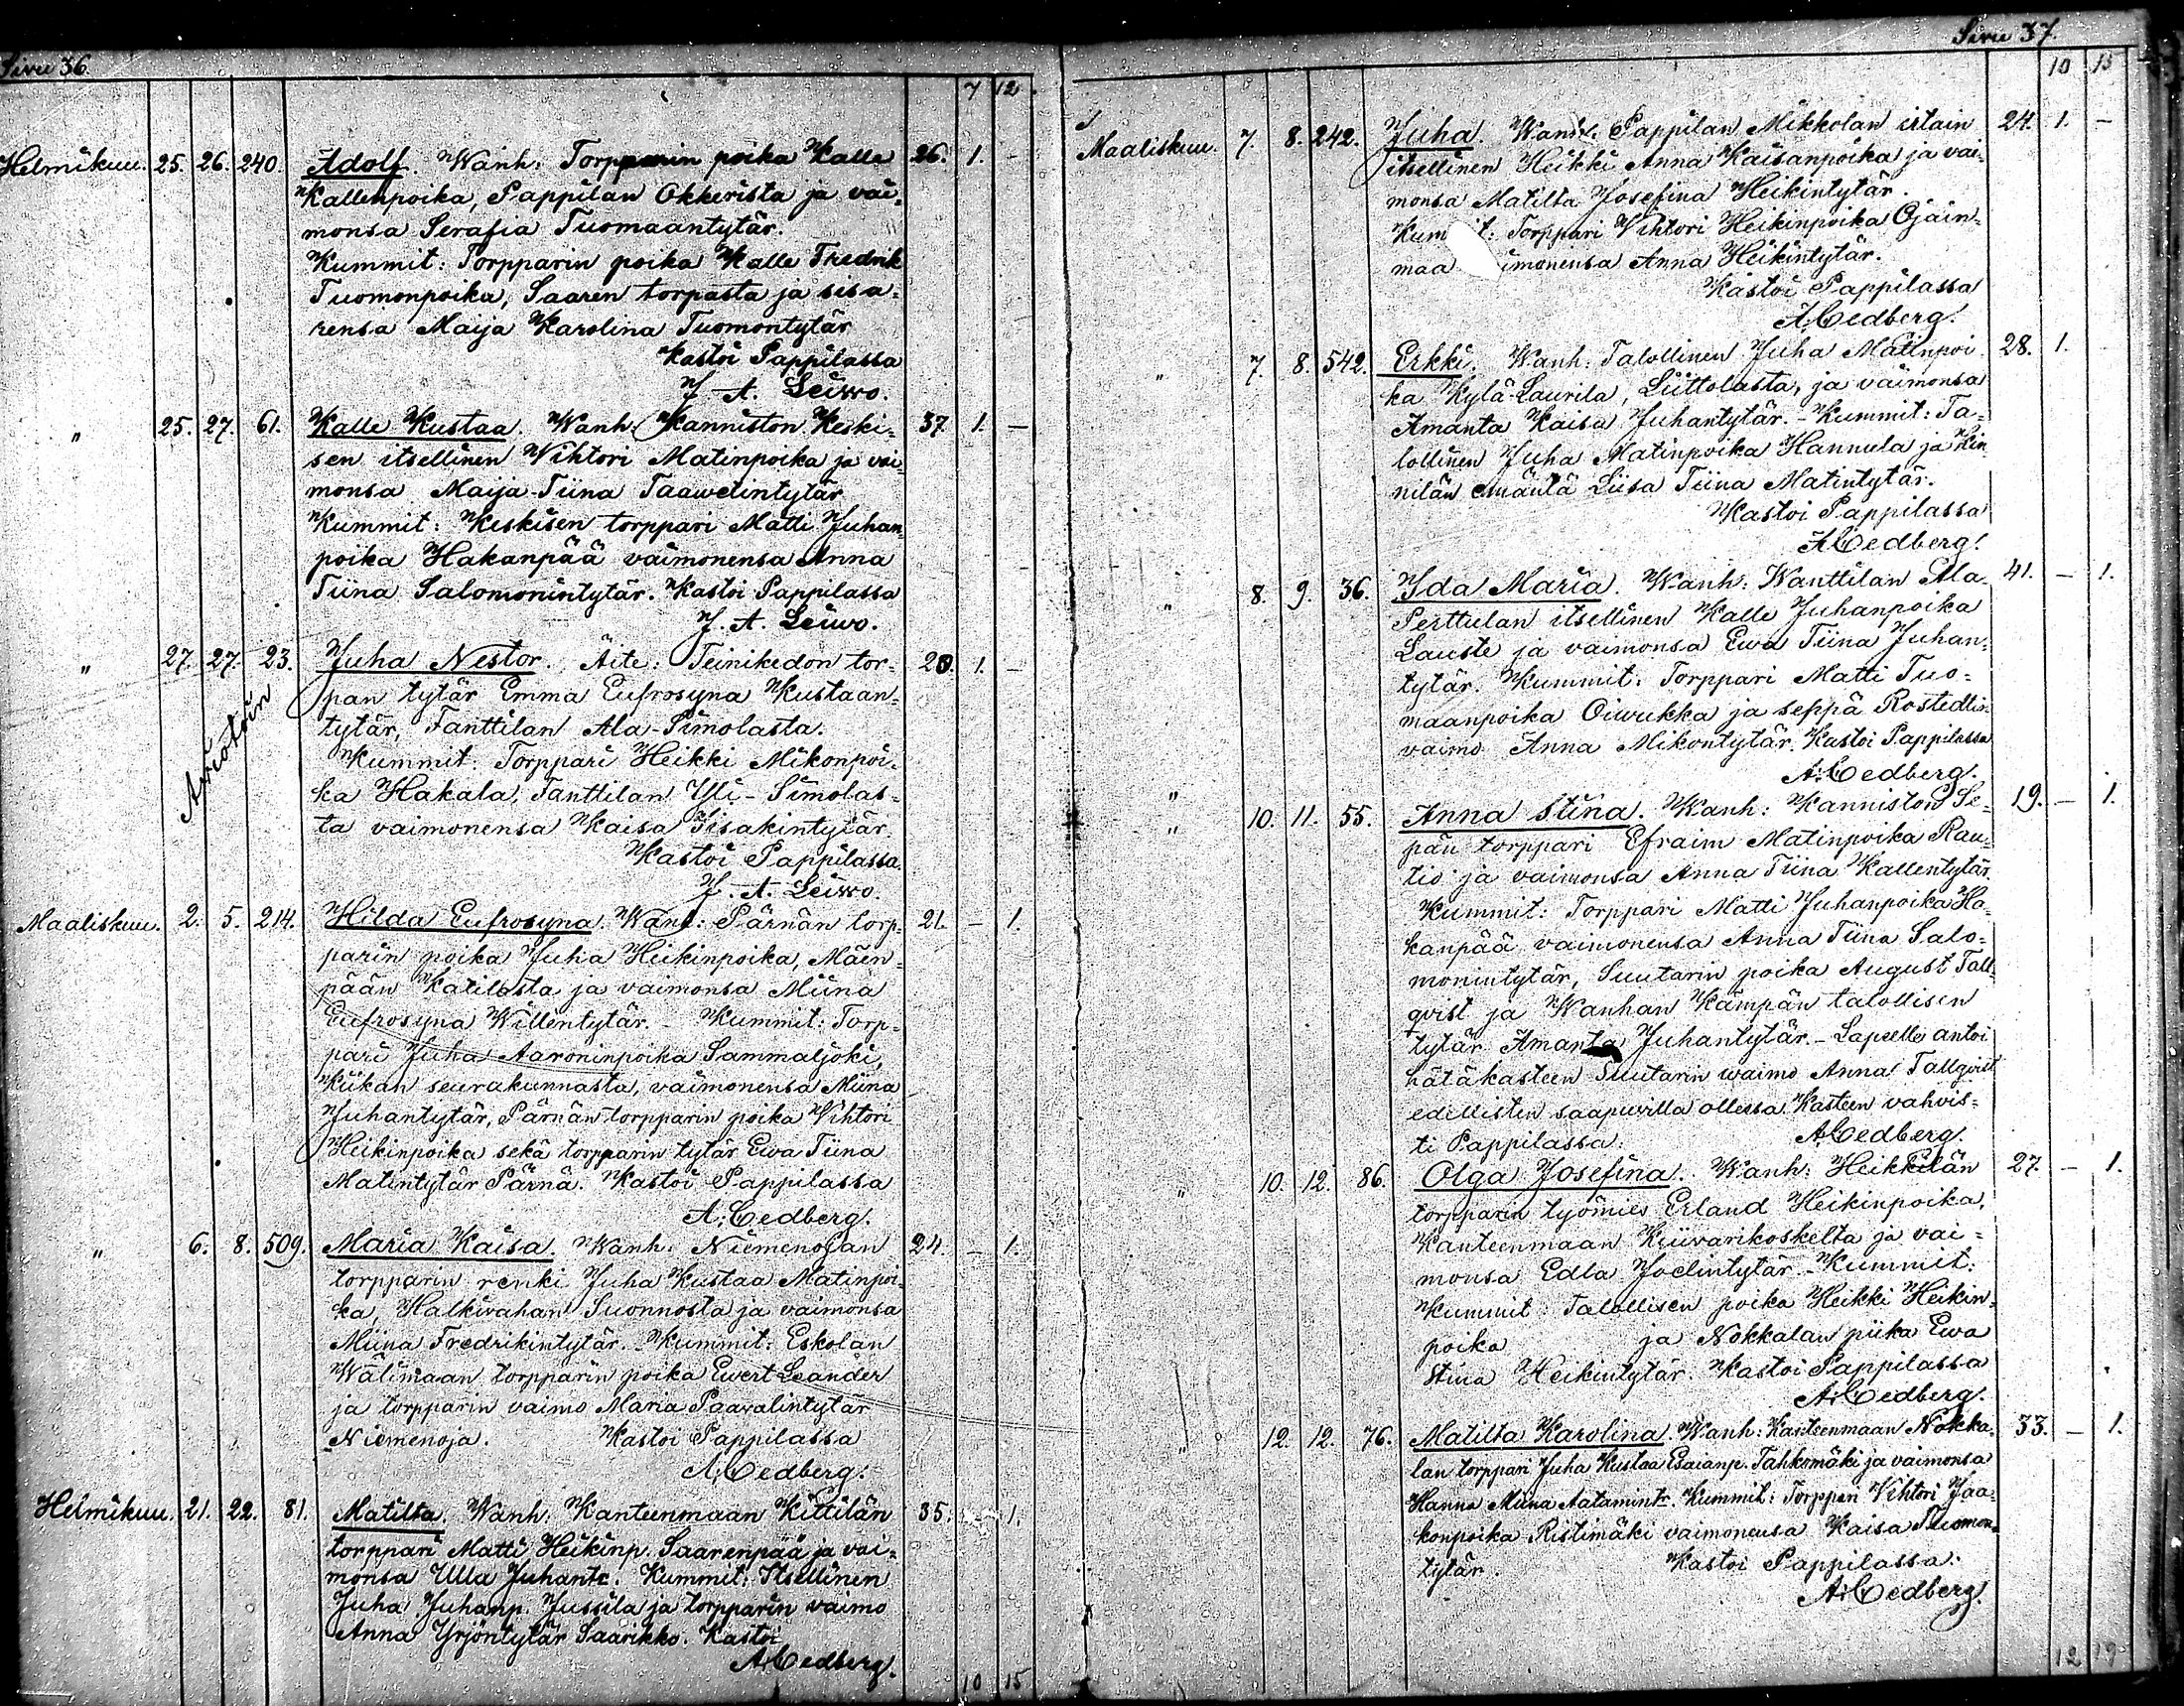 Sivu 36.
7 12.
Helmikuu. 25. 26. 240. Adolf. Wanh: Torpparin poika Kalle 26. 1. -
Kallenpoika, Pappilan Okkerista ja vai=
monsa Serafia Tuomaantytär.
Kummit: Torpparin poika Kalle Fredrik
Tuomonpoika, Saaren torpasta ja sisa=
rensa Maija Karolina Tuomontytär
Kastoi Pappilassa
J. A. Leiwo.
" 25. 27. 61. Kalle Kustaa. Wanh: Kanniston Keski= 37 1. -
sen itsellinen Wihtori Matinpoika ja vai=
monsa Maija-Tiina Taawetintytär
Kummit: Keskisen torppari Matti Juhan=
poika Hakanpää vaimonensa Anna
Tiina Salomonintytär. Kastoi Pappilassa
J. A. Leiwo.
" 27. 27. 23. Juha Nestor. Äite: Teinikedon tor= 20. 1. -
Aviotoin
pan tytär Emma Eufrosyna Kustaan=
tytär, Fanttilan Ala-Simolasta.
Kummit: Torppari Heikki Mikonpoi=
ka Hakala, Fanttilan Yli-Simolas=
ta vaimonensa Kaisa Iisakintytär.
Kastoi Pappilassa.
J. A. Leiwo.
Maaliskuu. 2. 5. 214. Hilda Eufrosyna. Wanh: Pärnän torp= 21. - 1.
parin poika Juha Heikinpoika, Mäen=
pään Katilasta ja vaimonsa Miina
Eufrosyna Willentytär. - Kummit: Torp=
pari Juha Aaroninpoika Sammaljoki,
Kiikan seurakunnasta, vaimonensa Miina
Juhantytär, Pärnän torpparin poika Vihtori
Heikinpoika sekä torpparin tytär Ewa Tiina
Matintytär Pärnä. Kastoi Pappilassa
A. Cedberg.
" 6. 8. 509. Maria Kaisa. Wanh: Niemenojan 24. - 1.
torpparin renki Juha Kustaa Matinpoi=
ka, Halkivahan Suonnosta ja vaimonsa
Miina Fredrikintytär. - Kummit: Eskolan
Wälimaan torpparin poika Ewert Leander
ja torpparin vaimo Maria Paavalintytär
Niemenoja. Kastoi Pappilassa
A. Cedberg.
Helmikuu. 21. 22. 81. Matilta. Wanh: Kanteenmaan Kittilän 35. - 1.
torppari Matti Heikinp. Saarenpää ja vai=
monsa Ulla Juhantr. Kummit: Itsellinen
Juha Juhanp. Jussila ja torpparin vaimo
Anna Yrjöntytär Saarikko. Kastoi
A. Cedberg.
10 15
Sivu 37.
10 15
Maaliskuu. 7. 8. 242. Juha. Wanh. Pappilan Mikkolan irtain 24. 1. -
itsellinen Heikki Anna Kaisanpoika ja vai=
monsa Matilta Josefina Heikintytär.
Kum it: Torppari Vihtori Heikinpoika Ojain=
maa imonensa Anna Heikintytär.
Kastoi Pappilassa
A. Cedberg.
" 7. 8. 542. Erkki. Wanh: Talollinen Juha Matinpoi 28. 1.
ka Kylä-Laurila, Liittolasta, ja vaimonsa
Amanta Kaisa Juhantytär. - Kummit: Ta=
lollinen Juha Matinpoika Hannula ja
nilän emäntä Liisa Tiina Matintytär.
Kastoi Pappilassa
A. Cedberg.
" 8. 9. 36. Ida Maria. Wanh: Wanttilan Ala- 41. - 1.
Perttulan itsellinen Kalle Juhanpoika
Lauste ja vaimonsa Ewa Tiina Juhan=
tytär. Kummit: Torppari Matti Tuo=
maanpoika Oiwukka ja seppä Rostedtin
vaimo Anna Mikontytär. Kastoi Pappilassa
A. Cedberg.
"
" 10. 11. 55. Anna Stina. Wanh: Kanniston Se= 19. - 1.
pän torppari Efraim Matinpoika Rau=
tio ja vaimonsa Anna Tiina Kallentytär.
Kummit: Torppari Matti Juhanpoika Ha=
kanpää vaimonensa Anna Tiina Salo=
monintytär, Suutarin poika August Tall=
qvist ja Wanhan Kämpän talollisen
tytär Amanta Juhantytär. - Lapselle antoi
hätäkasteen Suutarin waimo Anna Tallqvist
edellisten saapuvilla ollessa. Kasteen vahvis=
ti Pappilassa. A. Cedberg.
" 10. 12. 86. Olga Josefina. Wanh: Heikkilän 27. - 1.
torpparin työmies Erland Heikinpoika,
Kanteenmaan Kiiwarikoskelta ja vai=
monsa Edla Joelintytär. - Kummit:
Kummit: Talollisen poika Heikki Heikin=
poika ja Nokkalan piika Ewa
Stina Heikintytär. Kastoi Pappilassa
A. Cedberg.
" 12. 12. 76. Matilta Karolina. Wanh: Kanteenmaan Nokka= 33. - 1.
lan torppari Juha Kustaa Esaianp. Tahkomäki ja vaimonsa
Hanna Miina Aatamintr. Kummit: Torppari Vihtori Jaa=
konpoika Ristimäki vaimonensa Kaisa Tuomon=
tytär. Kastoi Pappilassa.
A. Cedberg.
12 19